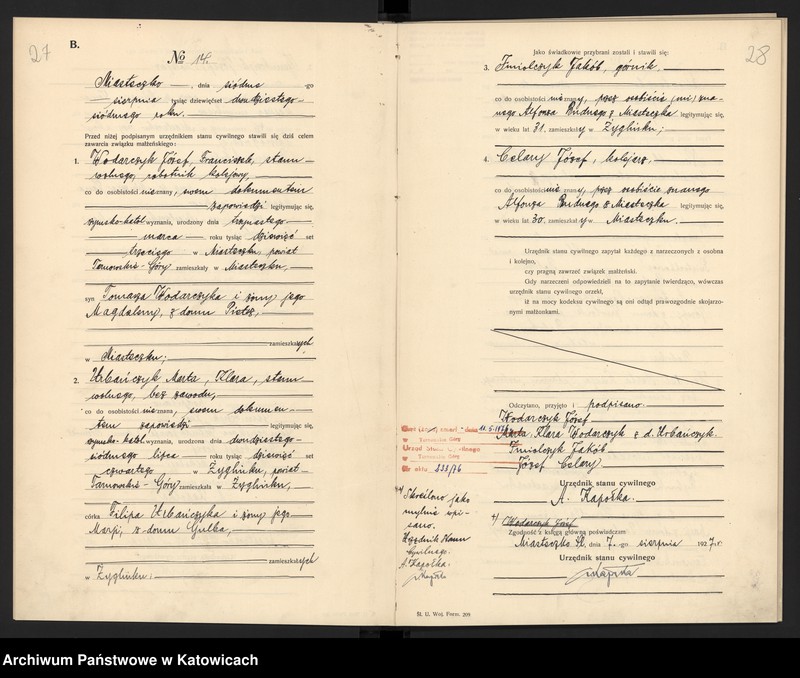 27
B.
№ 14.
Miasteczko, dnia siódme -go
sierpnia tysiąc dziewięćset dwudziestego-
siódmego roku.
Przed niżej podpisanym urzędnikiem stanu cywilnego stawili się dziś celem
zawarcia związku małżeńskiego:
1. Wodarczyk Józef, Franciszek, stanu
wolnego, robotnik kolejowy,
co do osobistości nieznany, swem dokumentem
zapowiedzi legitymując się,
rzymsko-katol. wyznania, urodzony dnia trzynastego
marca roku tysiąc dziewięć set
trzeciego w Miasteczku, powiat
Tarnowskie-Góry zamieszkały w Miasteczku,
syn Tomasza Wodarczyka i żony jego
Magdaleny, z domu
zamieszkałych
w Miasteczku;
2. Urbańczyk Marta, Klara, stanu
wolnego, bez zawodu,
co do osobistości nieznana, swem dokumen-
tem zapowiedzi legitymując się,
rzymsko-katol. wyznania, urodzona dnia dwudziestego-
siódmego lipca roku tysiąc dziewięć set
czwartego w Żyglinku, powiat
Tarnowskie-Góry zamieszkała w Żyglinku,
córka Filipa Urbańczyka i żony jego
Marji, z domu Gulba,
zamieszkałych
w Żyglinku.
28
Jako świadkowie przybrani zostali i stawili się:
3. Imiolczyk Jakób, górnik.
co do osobistości nieznany, przez osobiście (mi) zna-
nego Alfonza z Miasteczka legitymując się,
w wieku lat 31, zamieszkały w Żyglinku;
4. Celary Józef, kolejarz,
co do osobistości nieznany, przez osobiście znanego
Alfonza z Miasteczka legitymując się,
w wieku lat 30. zamieszkały w Miasteczku.
Urzędnik stanu cywilnego zapytał każdego z narzeczonych z osobna
i kolejno,
czy pragną zawrzeć związek małżeński.
Gdy narzeczeni odpowiedzieli na to zapytanie twierdząco, wówczas
urzędnik stanu cywilnego orzekł,
iż na mocy kodeksu cywilnego są oni odtąd prawozgodnie skojarzo-
nymi małżonkami.
Odczytano, przyjęto i podpisano.
Wodarczyk Józef
Marta, Klara Wodarczyk z d. Urbańczyk.
Imiolczyk Jakób
Józef Celary
Urzędnik stanu cywilnego
A. Kapołka.
Urząd Stanu Cywilnego
w Tarnowskie Góry
Nr aktu 333/76
*) Skreślono jako
mylnie wpi-
sano.
Urzędnik stanu
cywilnego.
A. Kapołka.
*) Wodarczyk Józef
Zgodność z księgą główną poświadczam
Miasteczko Śl, dnia 7. -go sierpnia 1927 r.
Urzędnik stanu cywilnego
Kapołka
St. U. Woj. Form. 209
Archiwum Państwowe w Katowicach